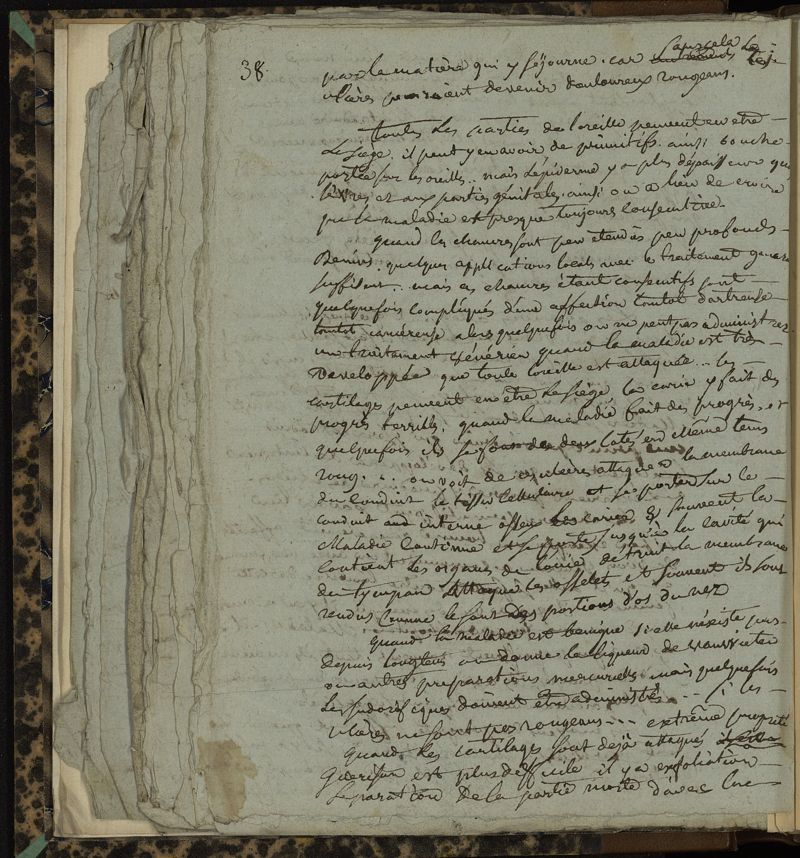 38.
par la matière qui y séjourne. car sans cela les
ulcères peuvent devenir douloureux rongeans.
toutes les parties de l'oreille peuvent en etre
le siege, il peut y en avoir de primitifs. ainsi bouche
portée sur les oreilles.. mais l'épiderme y a plus d'épaisseur qu'
lèvres et aux parties génitales. ainsi on a lieu de croire
que la maladie est presque toujours consecutive.
quand les chancres sont peu etendus peu profonds
Benins. quelques applications locales avec le traitement general
suffisent.. mais ces chancres étant consecutifs sont
quelquefois compliqués d'une affection tantot dartreuse
tantot cancéreuse alors quelquefois on ne peut pas administrer
un traitement vénérien quand la maladie est tres
Developpée que toute l'oreille est attaquée.. les
cartilages peuvent en etre le siége la carie y fait des
progrès terribles. quand la maladie fait des progrès
quelquefois ils des deux cotés en même tems
roug... on voit de ces ulceres attaquer la membrane
du conduit le tissu cellulaire et se porter sur le
conduit aud interne osseu les carier & souvent la
Maladie continue et se porte jusqu'à la cavité qui
contient les organes de l'ouie detruit la membrane
du tympan attaque les osselets et souvent ils sont
rendus comme le sont des portions d'os du nez
quand la maladie est benigne si elle n'éxiste pas
depuis longtems on donne la liqueur de vanswieten
ou autres preparations mercurielles mais quelquefois
les sudorifiques doivent etre administrés... si les
ulcères ne sont pas rongeans... extrême propreté
quand les cartilages sont dejà attaqués
Guerison est plus difficile il y a exfoliation
Séparation de la partie morte d'avec la